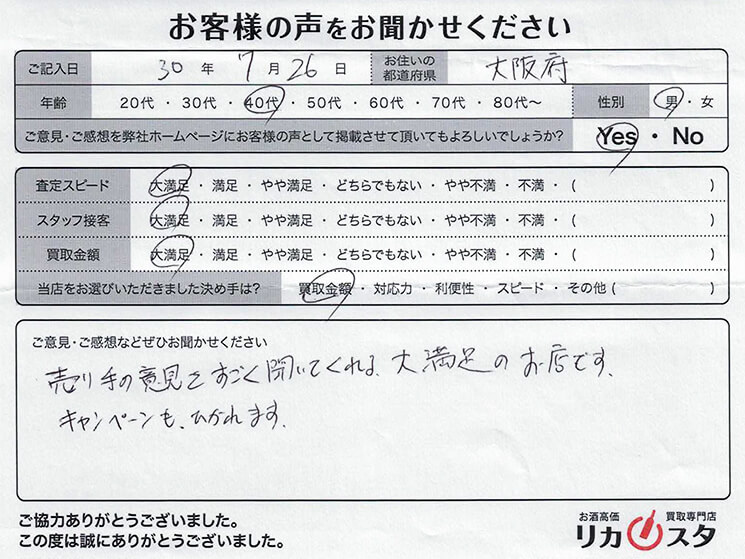 お客様の声をお聞かせください
ご記入日 30 年 7 月 26 日 お住いの都道府県 大阪府
年齢 20代 ・ 30代 ・ 40代 ・ 50代 ・ 60代 ・ 70代 ・ 80代〜 性別 男 ・ 女
ご意見・ご感想を弊社ホームページにお客様の声として掲載させて頂いてもよろしいでしょうか? Yes ・ No
査定スピード 大満足 ・ 満足 ・ やや満足 ・ どちらでもない ・ やや不満 ・ 不満 ・ ( )
スタッフ接客 大満足 ・ 満足 ・ やや満足 ・ どちらでもない ・ やや不満 ・ 不満 ・ ( )
買取金額 大満足 ・ 満足 ・ やや満足 ・ どちらでもない ・ やや不満 ・ 不満 ・ ( )
当店をお選びいただきました決め手は? 買取金額 ・ 対応力 ・ 利便性 ・ スピード ・ その他 ( )
ご意見・ご感想などぜひお聞かせください
売り手の意見をすごく聞いてくれる、大満足のお店です、
キャンペーンも、ひかれます、
ご協力ありがとうございました。
この度は誠にありがとうございました。
お酒高価 買取専門店
リカスタ